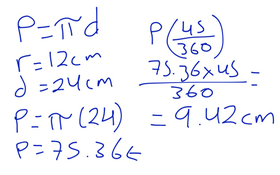 P = πd
r = 12cm
d = 24cm
P = π(24)
P = 75.36
P(45/360)
75.36×45/360 =
= 9.42cm